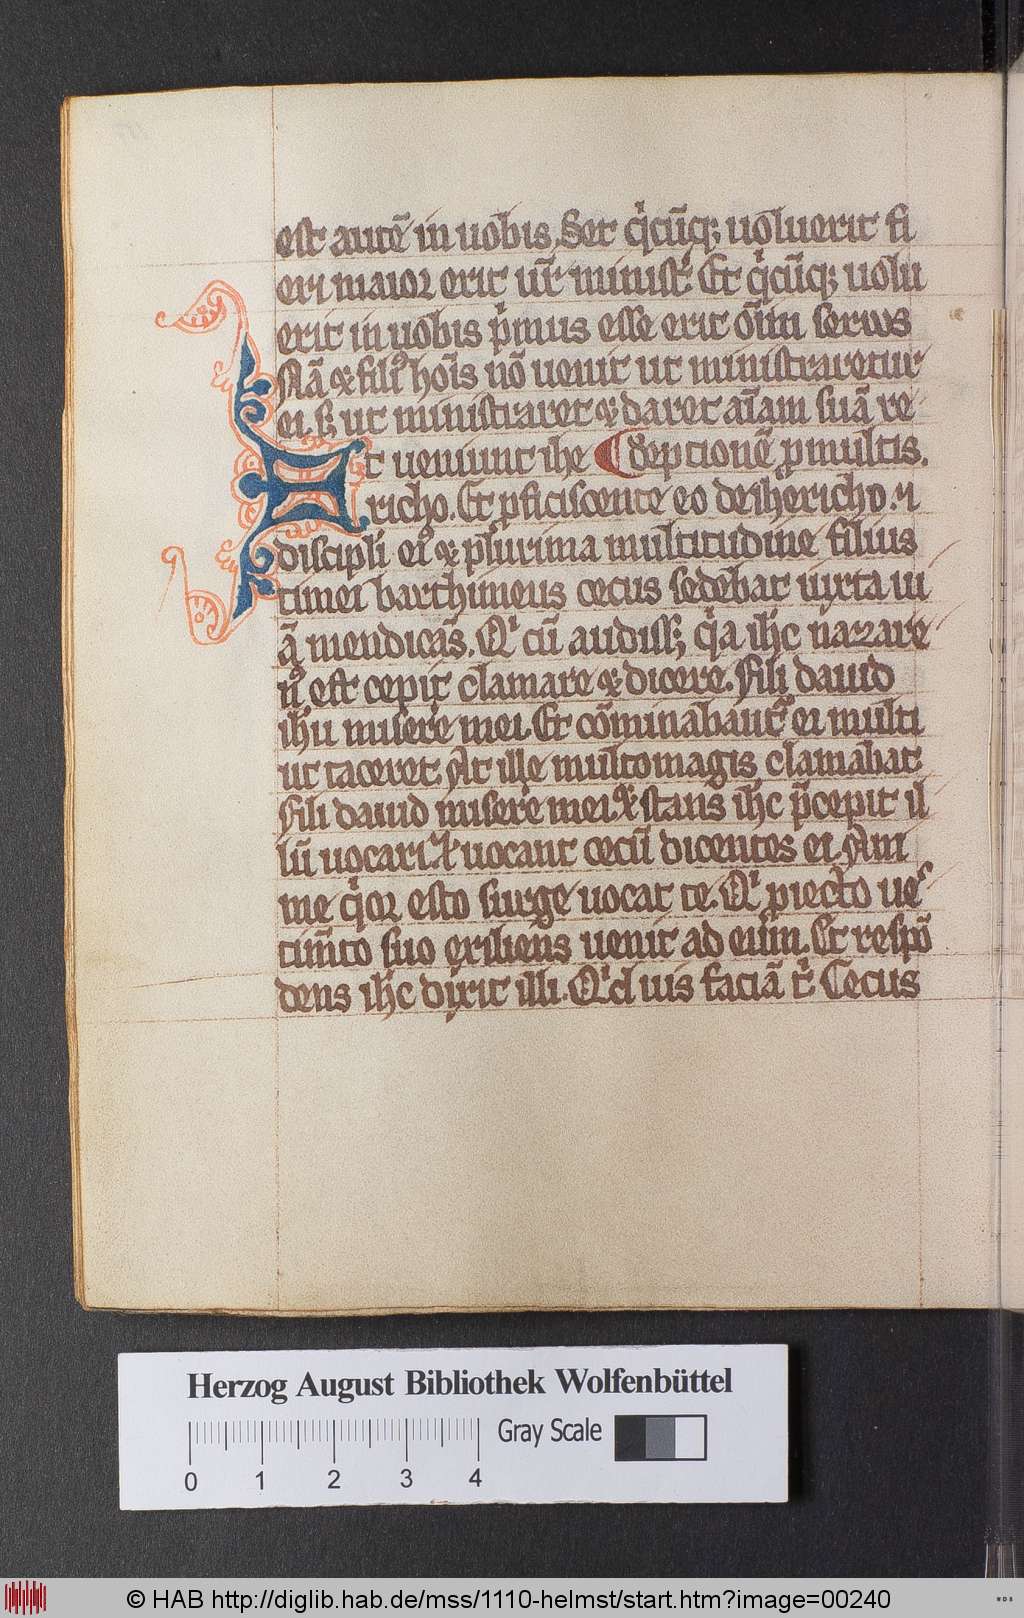 est autē in uobis. Set qͥcūqꝫ uoluerit fi
eri maior erit ur̄ minist̾. Et qͥcūqꝫ uolu
erit in uobis pͥmus esse erit oīm seruus
Nā ⁊ filiꝰ hoīs nō uenit ut ministraretur
ei. sꝫ ut ministraret ⁊ daret aīam suā re
Et ueniunt ihe ¶ dēptionē ꝓ multis.
richo. Et ꝓficiscente eo de ihericho. ⁊
discipłi eiꝰ ⁊ plurima multitudine filius
timei barthimeus cecus sedebat iuxta ui
ā mendicās. Qͥ cū audissꝫ qͥa ihc nazare
nꝰ est cepit clamare ⁊ dicere. Fili dauid
ihu miserere mei. Et cōminabantᷣ ei multi
ut taceret. At ille multo magis clamabat
Fili dauid miserere mei. ⁊ stans ihc p̄cepit il
lū uocari. ⁊ uocant cecū dicentes ei. Aīm
me qͥor esto surge uocat te. Qͥ ꝓiecto ues
tim̄to suo exiliens uenit ad eum. Et respō
dens ihc dixit illi. Qͥd uis faciā tͥ. Cecus
Herzog August Bibliothek Wolfenbüttel
Gray Scale
0 1 2 3 4
© HAB http://diglib.hab.de/mss/1110-helmst/start.htm?image=00240